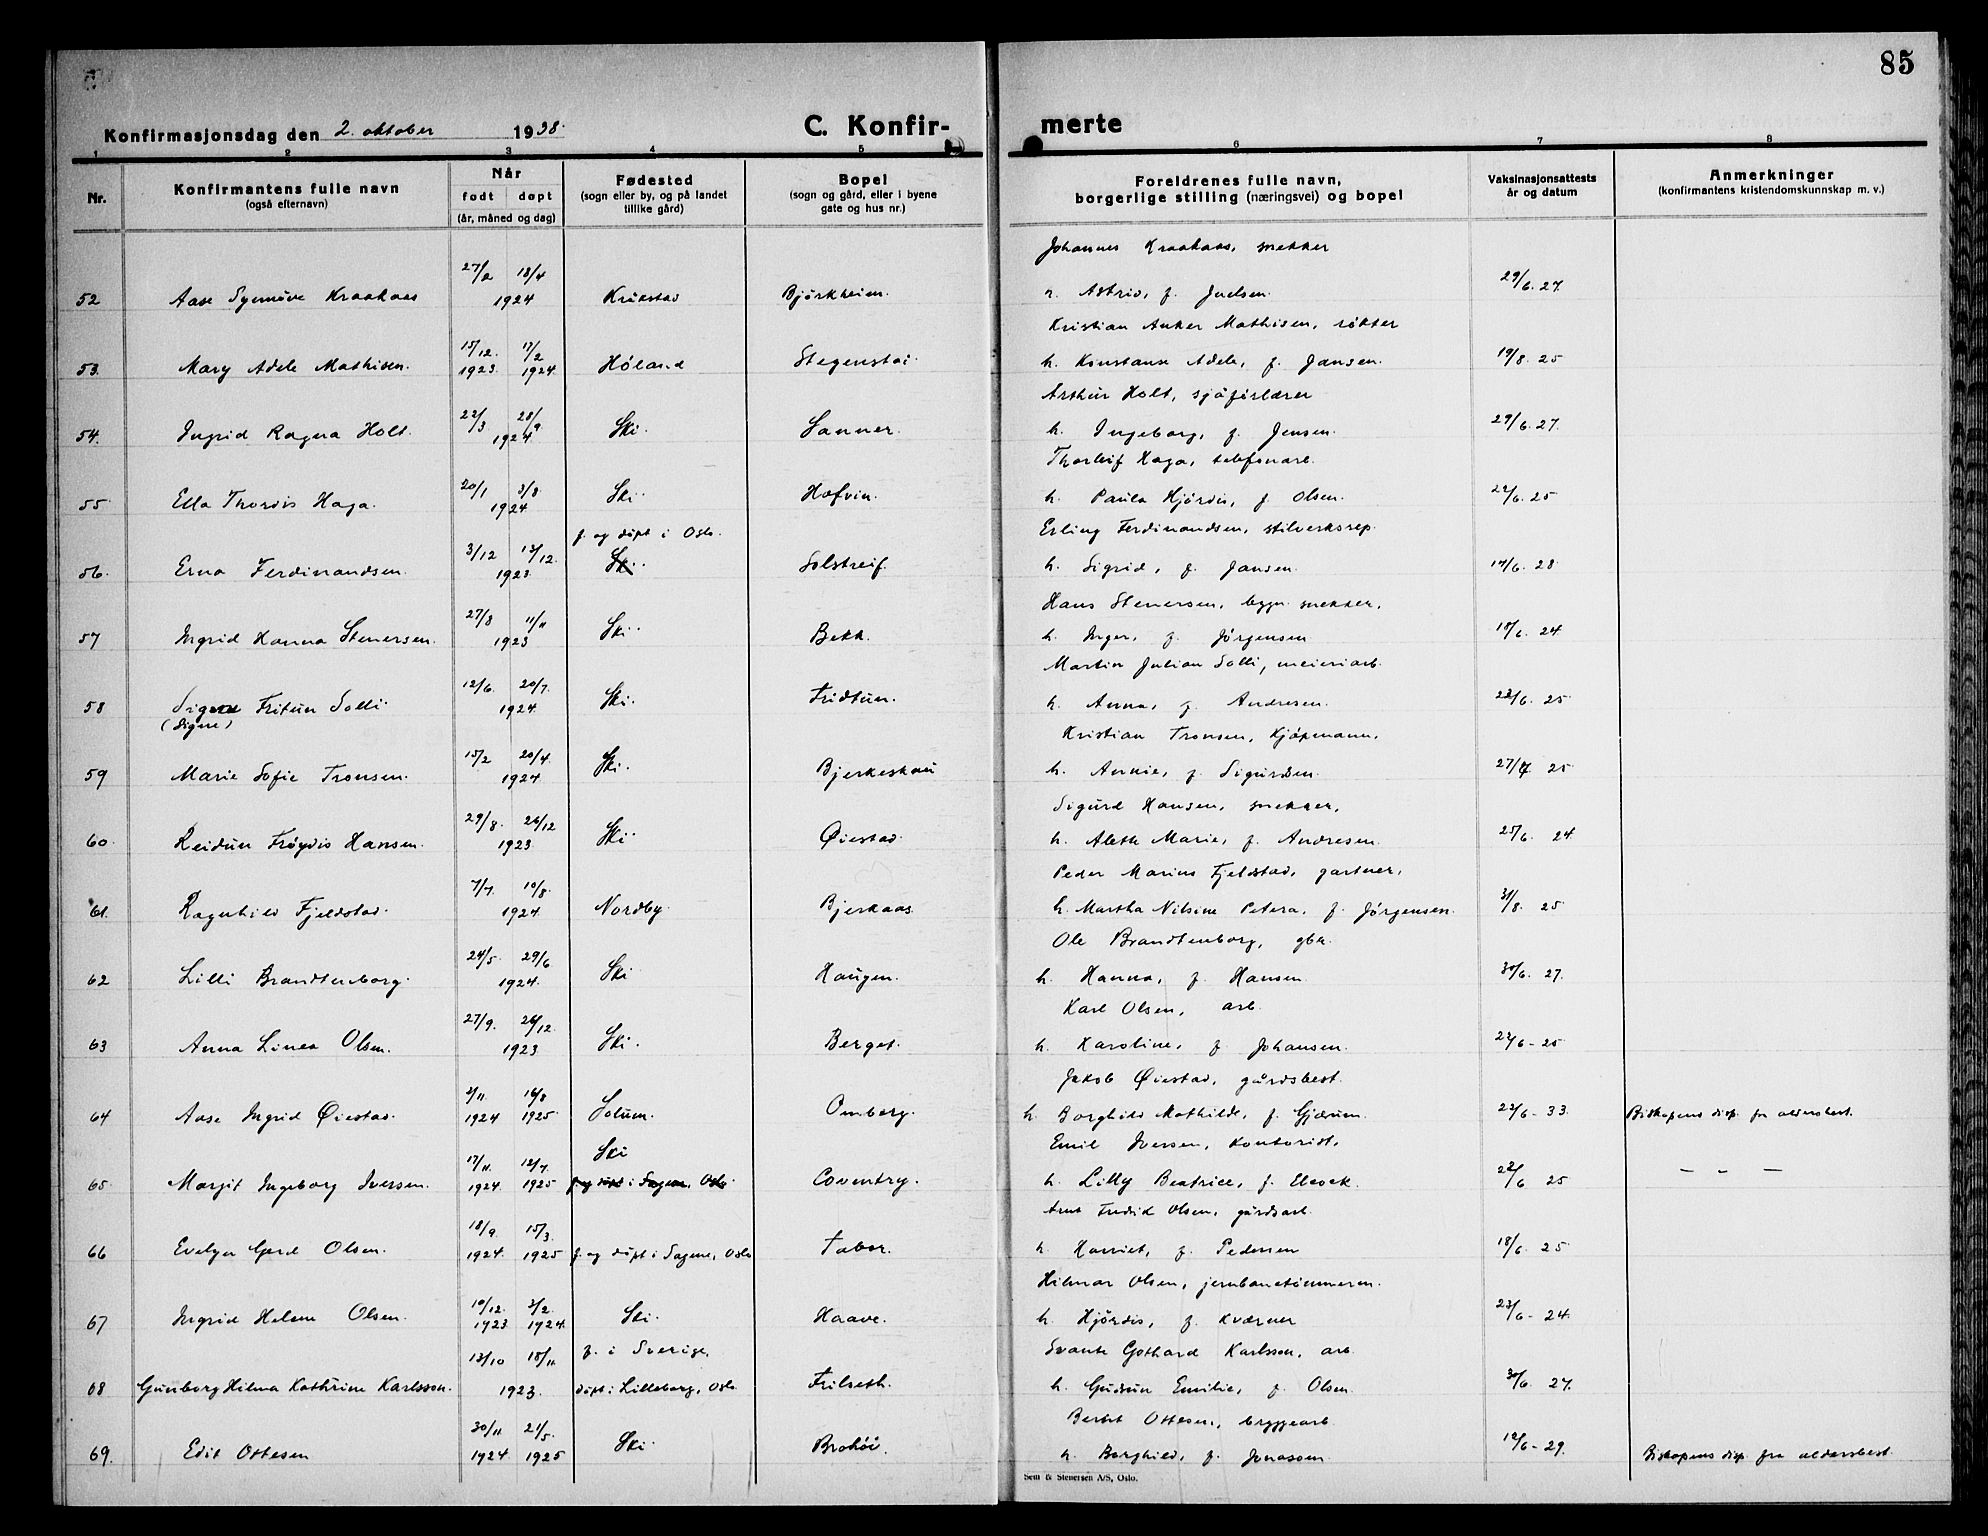 85
Konfirmasjonsdag den 2. oktober 1938.
C. Konfir-
merte
1 2 3 4 5 6 7 8
Nr.
Konfirmantens fulle navn
(også efternavn)
Når
født døpt
(år, måned og dag)
Fødested
(sogn eller by, og på landet
tillike gård)
Bopel
(sogn og gård, eller i byene
gate og hus nr.)
Foreldrenes fulle navn,
borgerlige stilling (næringsvei) og bopel
Vaksinasjonsattests
år og datum
Anmerkninger
(konfirmantens kristendomskunnskap m. v.)
Johannes Kraakaas, snekker
27/2 18/4
52 Aase Synnøve Kraakaas 1924 Kråkstad Bjørkheim. h. Astrid, f. Juelsen. 29/6.27.
Kristian Anker Mathisen, røkter
15/12. 17/2
53. Mary Adele Mathisen. 1923 1924 Høland Stegenstøi h. Konstanse Adele, f. Jansen. 19/8. 25
Arthur Holt, sjåførlærer
22/3 28/9
54. Ingrid Ragna Holt. 1924 Ski. Sanner. h. Ingeborg, f. Jensen. 29/6.27.
Thorleif Haga, telefonarb.
20/1 3/8
55 Ella Thordis Haga. 1924 Ski. Hofvin. h. Paula Hjørdis, f. Olsen. 22/6.25
f. og døpt i Oslo. Erling Ferdinandsen, stilverksrep.
3/12 13/12.
56. Erna Ferdinandsen. 1923 Ski. Solstreif. h. Sigrid, f. Jansen. 17/6.28
Hans Stenersen, bygn. snekker,
27/8 11/11
57 Ingrid Hanna Stenersen. 1923 Ski. Bekk. h. Inger, f. Jørgensen 18/6. 24
Martin Julian Solli, meieriarb.
12/6. 20/7.
58 Signe Fritun Solli 1924. Ski. Fridtun. h. Anna, f. Andresen. 22/6. 25
(Signe)
Kristian Tronsen, Kjøpmann.
15/2 20/4.
59 Marie Sofie Tronsen. 1924 Ski. Bjerkeskau h. Annie, f. Sigurdsen. 27/7 25
Sigurd Hansen, snekker,
29/8. 26/12
60. Reidun Frøydis Hansen. 1923. Ski. Øiestad. h. Aleth Marie, f. Andresen. 25/6. 24
Peder Marius Fjeldstad, gartner,
7/7. 10/8.
61. Ragnhild Fjeldstad. 1924 Nordby. Bjerkaas. h. Martha Nilsine Petera, f. Jørgensen. 31/8. 25
Ole Brandtenborg, gbr.
24/5. 29/6.
62 Lilli Brandtenborg. 1924. Ski Haugen. h. Hanna, f. Hansen 30/6. 27.
Karl Olsen, arb.
27/9. 26/12.
63 Anna Linea Olsen. 1923 Ski. Berget. h. Karoline, f. Johansen. 22/6-25
Jakob Øiestad, gårdsbest.
2/11. 16/8
64 Aase Ingrid Øiestad. 1924 1925. Solum. Omberg. h. Borghild Mathilde, f. Gjærum. 22/6-33. Biskopens disp. fra aldersbest.
Ski Emil Iversen, Kontorist,
17/11. 12/7.
65. Margit Ingeborg Iversen. 1924. 1925 f. og døpt i Sagene, Oslo. Coventry. h. Lilly Beatrice, f. Elcock. 22/6 25 — „ —
Arnt Fredrid Olsen, gårdsarb.
18/9. 15/3.
66 Evelyn Gerd Olsen. 1924. 1925 f. og døpt i Sagene, Oslo Tabor. h. Harriet, f. Pedersen 18/6. 25
Hilmar Olsen, jernbanetømmerm.
10/12. 3/2.
67 Ingrid Helene Olsen. 1923 1924. Ski. Haave. h. Hjørdis, f. Kværner 23/6-24.
f. i Sverige, Svante Gothard Karlsson, arb.
13/10 18/11
68 Gunborg Hilma Kathrine Karlsson. 1923. døpt i Lilleborg, Oslo Frilseth. h. Gudrun Emilie, f. Olsen. 30/6. 27.
Berbt Ottesen, bryggearb.
30/11 21/5.
69. Edit Ottesen 1924 1925 Ski. Brohøi. h. Borghild, f. Jonassen. 12/6-29. Biskopens disp. fra aldersbest.
Sem & Stenersen A/S, Oslo.